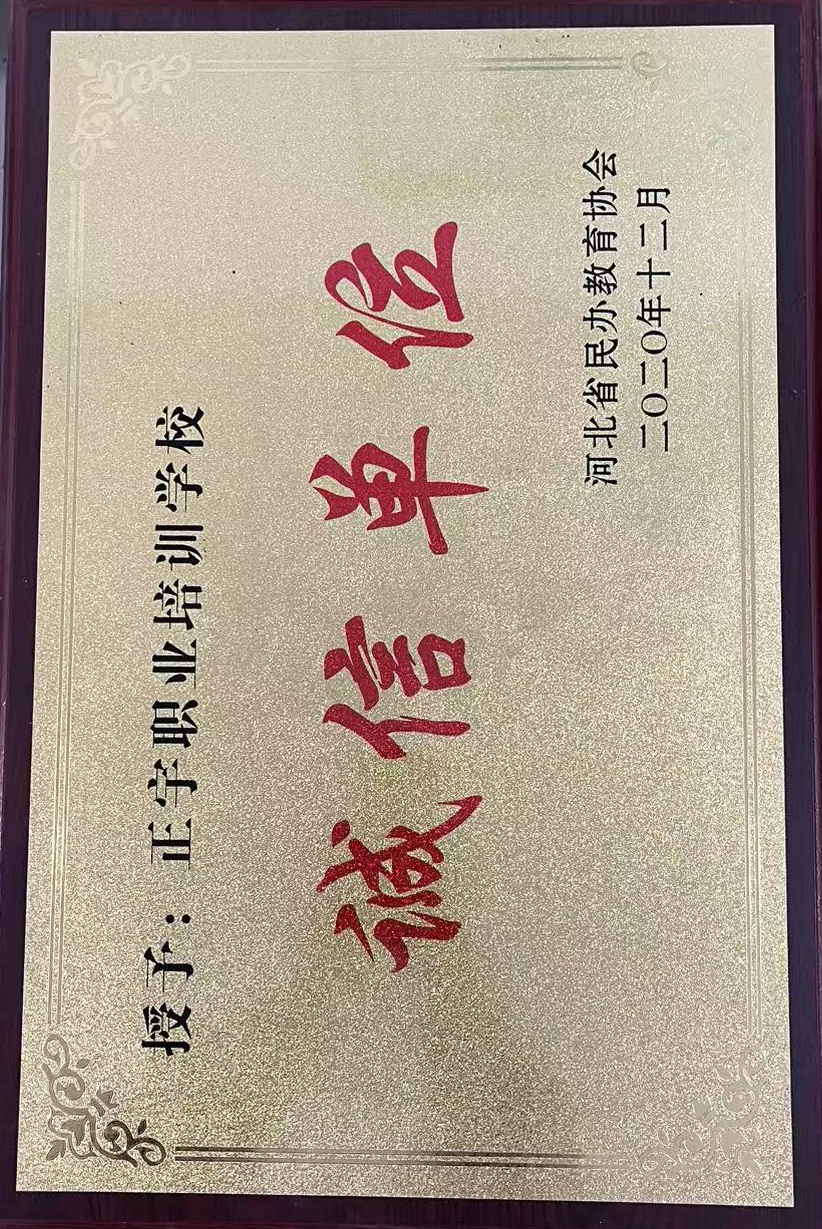 授予：正宇职业培训学校
诚信单位
河北省民办教育协会
二〇二〇年十二月